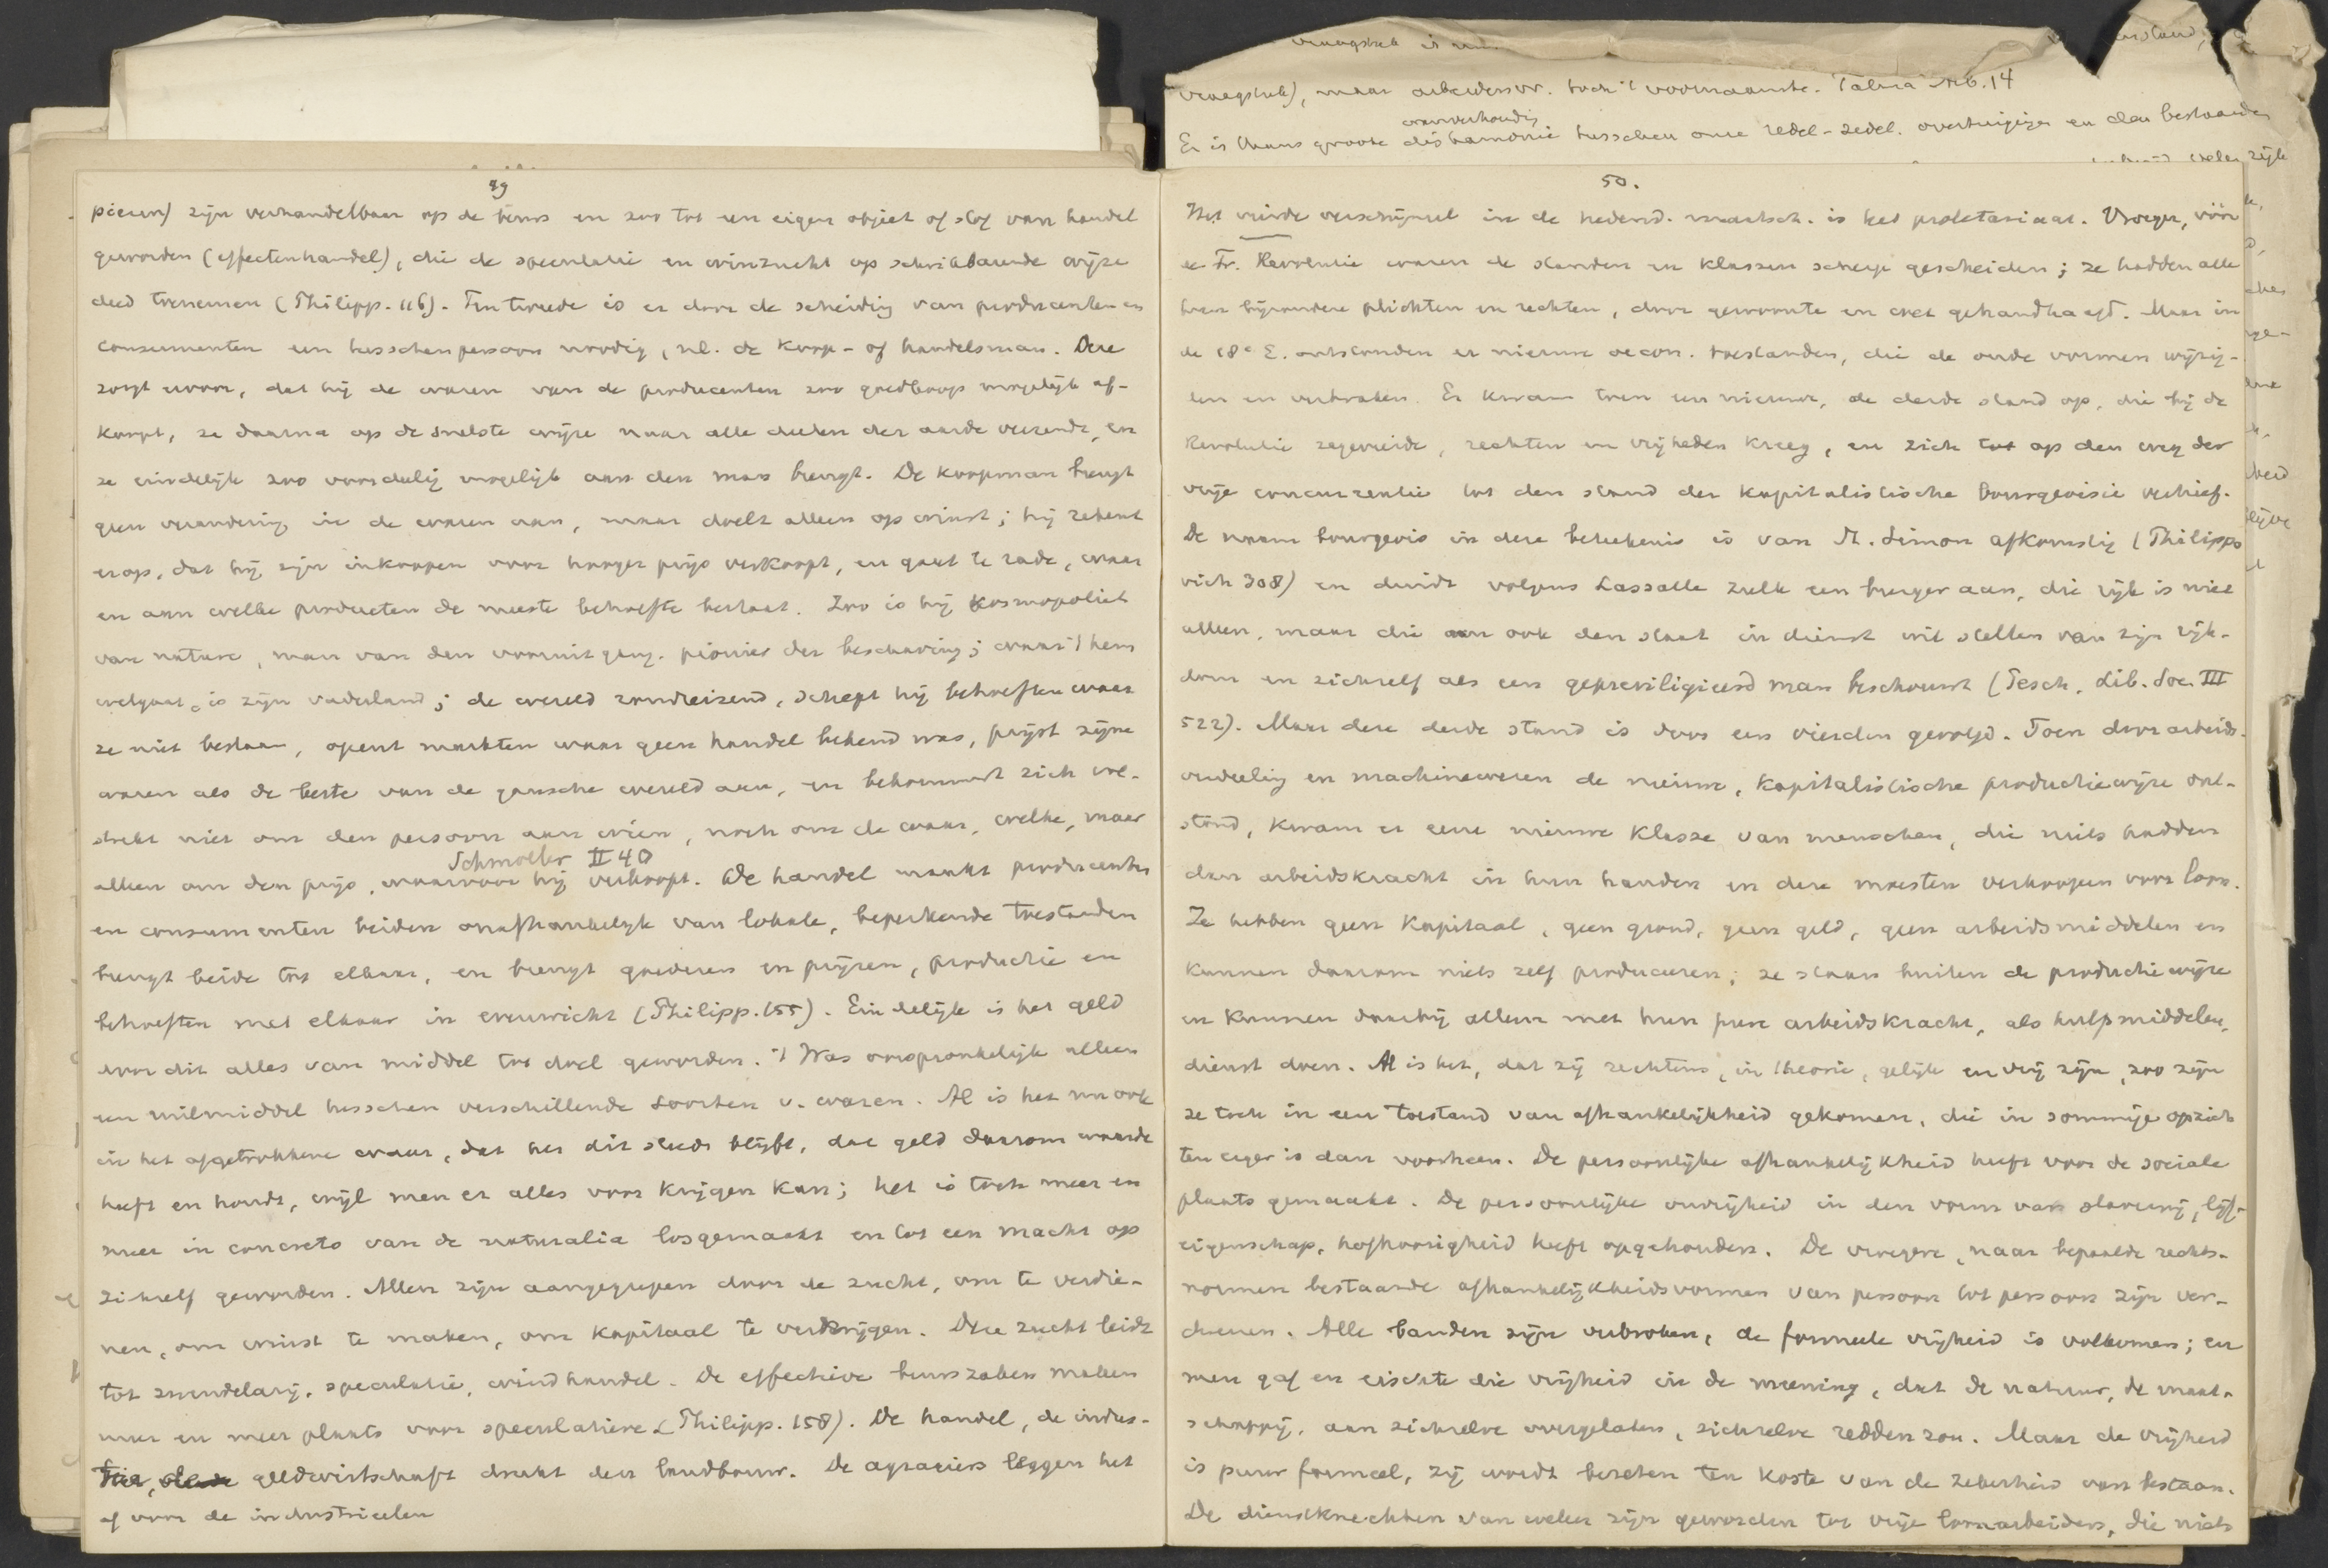 vraagstuk is
vraagstuk), maar arbeidersvr. toch 't voornaamste. Talma Nº. 14
wanverhoudig
Er is thans groote disharmonie tusschen onze redel-zedel. overtuigigen en den bestaanden
49
pieren) zijn verhandelbaar op de beurs en zoo tot een eigen object of stof van handel
geworden (effectenhandel), die de speculatie en winzucht op schrikbarende wijze
deed toenemen (Philipp. 116). Ten tweede is er door de scheidig van producenten en
consumenten een tusschenpersoon noodig, nl. de koop- of handelsman. Deze
zorgt ervoor, dat hij de waren van de producenten zoo goedkoop mogelijk af-
koopt, ze daarna op de snelste wijze naar alle deelen der aarde verzendt, en
ze eindelijk zoo voordeelig mogelijk aan den man brengt. De koopman brengt
geen verandering in de waren aan, maar doelt alleen op winst; hij rekent
erop, dat hij zijn inkoopen voor hooger prijs verkoopt, en gaat te rade, waar
en aan welke producten de meeste behoefte bestaat. Zoo is hij kosmopoliet
van nature, man van den vooruitgang, pionier der beschaving; waar 't hem
welgaat, is zijn vaderland; de wereld rondreizend, schept hij behoeften waar
ze niet bestaan, opent markten waar geen handel bekend was, prijst zijne
waren als de beste van de gansche wereld aan, en bekommert zich vol-
strekt niet om den persoon aan wien, noch om de waar, welke, maar
Schmoller II 40
alleen om den prijs, waarvoor hij verkoopt. De handel maakt producenten
en consumenten beiden onafhankelijk van lokale, beperkende toestanden
brengt beide tot elkaar, en brengt goederen en prijzen, productie en
behoeften met elkaar in evenwicht (Philipp. 155). Eindelijk is het geld
voor dit alles van middel tot doel geworden. 't Was oorspronkelijk alleen
een ruilmiddel tusschen verschillende soorten v. waren. Al is het nu ook
in het afgetrokkene waar, dat het dit steeds blijft, dat geld daarom waarde
heeft en houdt, wijl men er alles voor krijgen kan; het is toch meer en
meer in concreto van de naturalia losgemaakt en tot een macht op
zichzelf geworden. Allen zijn aangegrepen door de zucht, om te verdie-
nen, om winst te maken, om kapitaal te verkrijgen. Deze zucht leidt
tot zwendelarij, speculatie, windhandel. De effective beurszaken maken
meer en meer plaats voor speculatieve (Philipp. 158). De handel, de indus-
trie, geldwirtschaft drukt den landbouw. De agrariers leggen het
af voor de industrieelen
50.
Het vierde verschijnsel in de hedend. maatsch. is het proletariaat. Vroeger, vóór
de Fr. Revolutie waren de standen en klassen scherp gescheiden; ze hadden alle
hun bijzondere plichten en rechten, door gewoonte en wet gehandhaafd. Maar in
de 18e E. ontstonden er nieuwe oecon. toestanden, die de oude vormen wijzig-
den en verbraken. Er kwam toen een nieuwe, de derde stand op, die bij de
Revolutie zegevierde, rechten en vrijheden kreeg, en zich tot op den weg der
vrije concurrentie tot den stand der kapitalistische bourgeoisie verhief.
De naam bourgeois in deze beteekenis is van St. Simon afkomstig (Philippo
vich 308) en duidt volgens Lassalle zulk een burger aan, die rijk is niet
alleen, maar die ook den staat in dienst wil stellen van zijn rijk-
dom en zichzelf als een gepreviligieerd man beschouwt (Pesch, Lib. Soc. III
522). Maar deze derde stand is door een vierden gevolgd. Toen door arbeids-
verdeelig en machinewezen de nieuwe, kapitalistische productiewijze ont-
stond, kwam er eene nieuwe klasse van menschen, die niets hadden
dan arbeidskracht in hun handen en deze moesten verkoopen voor loon.
Ze hebben geen kapitaal, geen grond, geen geld, geen arbeidsmiddelen en
kunnen daarom niets zelf produceeren; ze staan buiten de productiewijze
en kunnen daarbij alleen met hun pure arbeidskracht, als hulpmiddelen,
dienst doen. Al is het, dat zij rechtens, in theorie, gelijk en vrij zijn, zoo zijn
ze toch in een toestand van afhankelijkheid gekomen, die in sommige opzich
ten erger is dan voorheen. De persoonlijke afhankelijkheid heeft voor de sociale
plaats gemaakt. De persoonlijke onvrijheid in den vorm van slavernij, lijf-
eigenschap, hofhoorigheid heeft opgehouden. De vroegere, naar bepaalde rechts-
normen bestaande afhankelijkheidsvormen van persoon tot persoon zijn ver-
dwenen. Alle banden zijn verbroken, de formeele vrijheid is volkomen; en
men gaf en eischte die vrijheid in de meening, dat de natuur, de maat-
schappij, aan zichzelve overgelaten, zichzelve redden zou. Maar de vrijheid
is puur formeel, zij wordt bezeten ten koste van de zekerheid van bestaan.
De dienstknechten van weleer zijn geworden tot vrije loonarbeiders, die niets